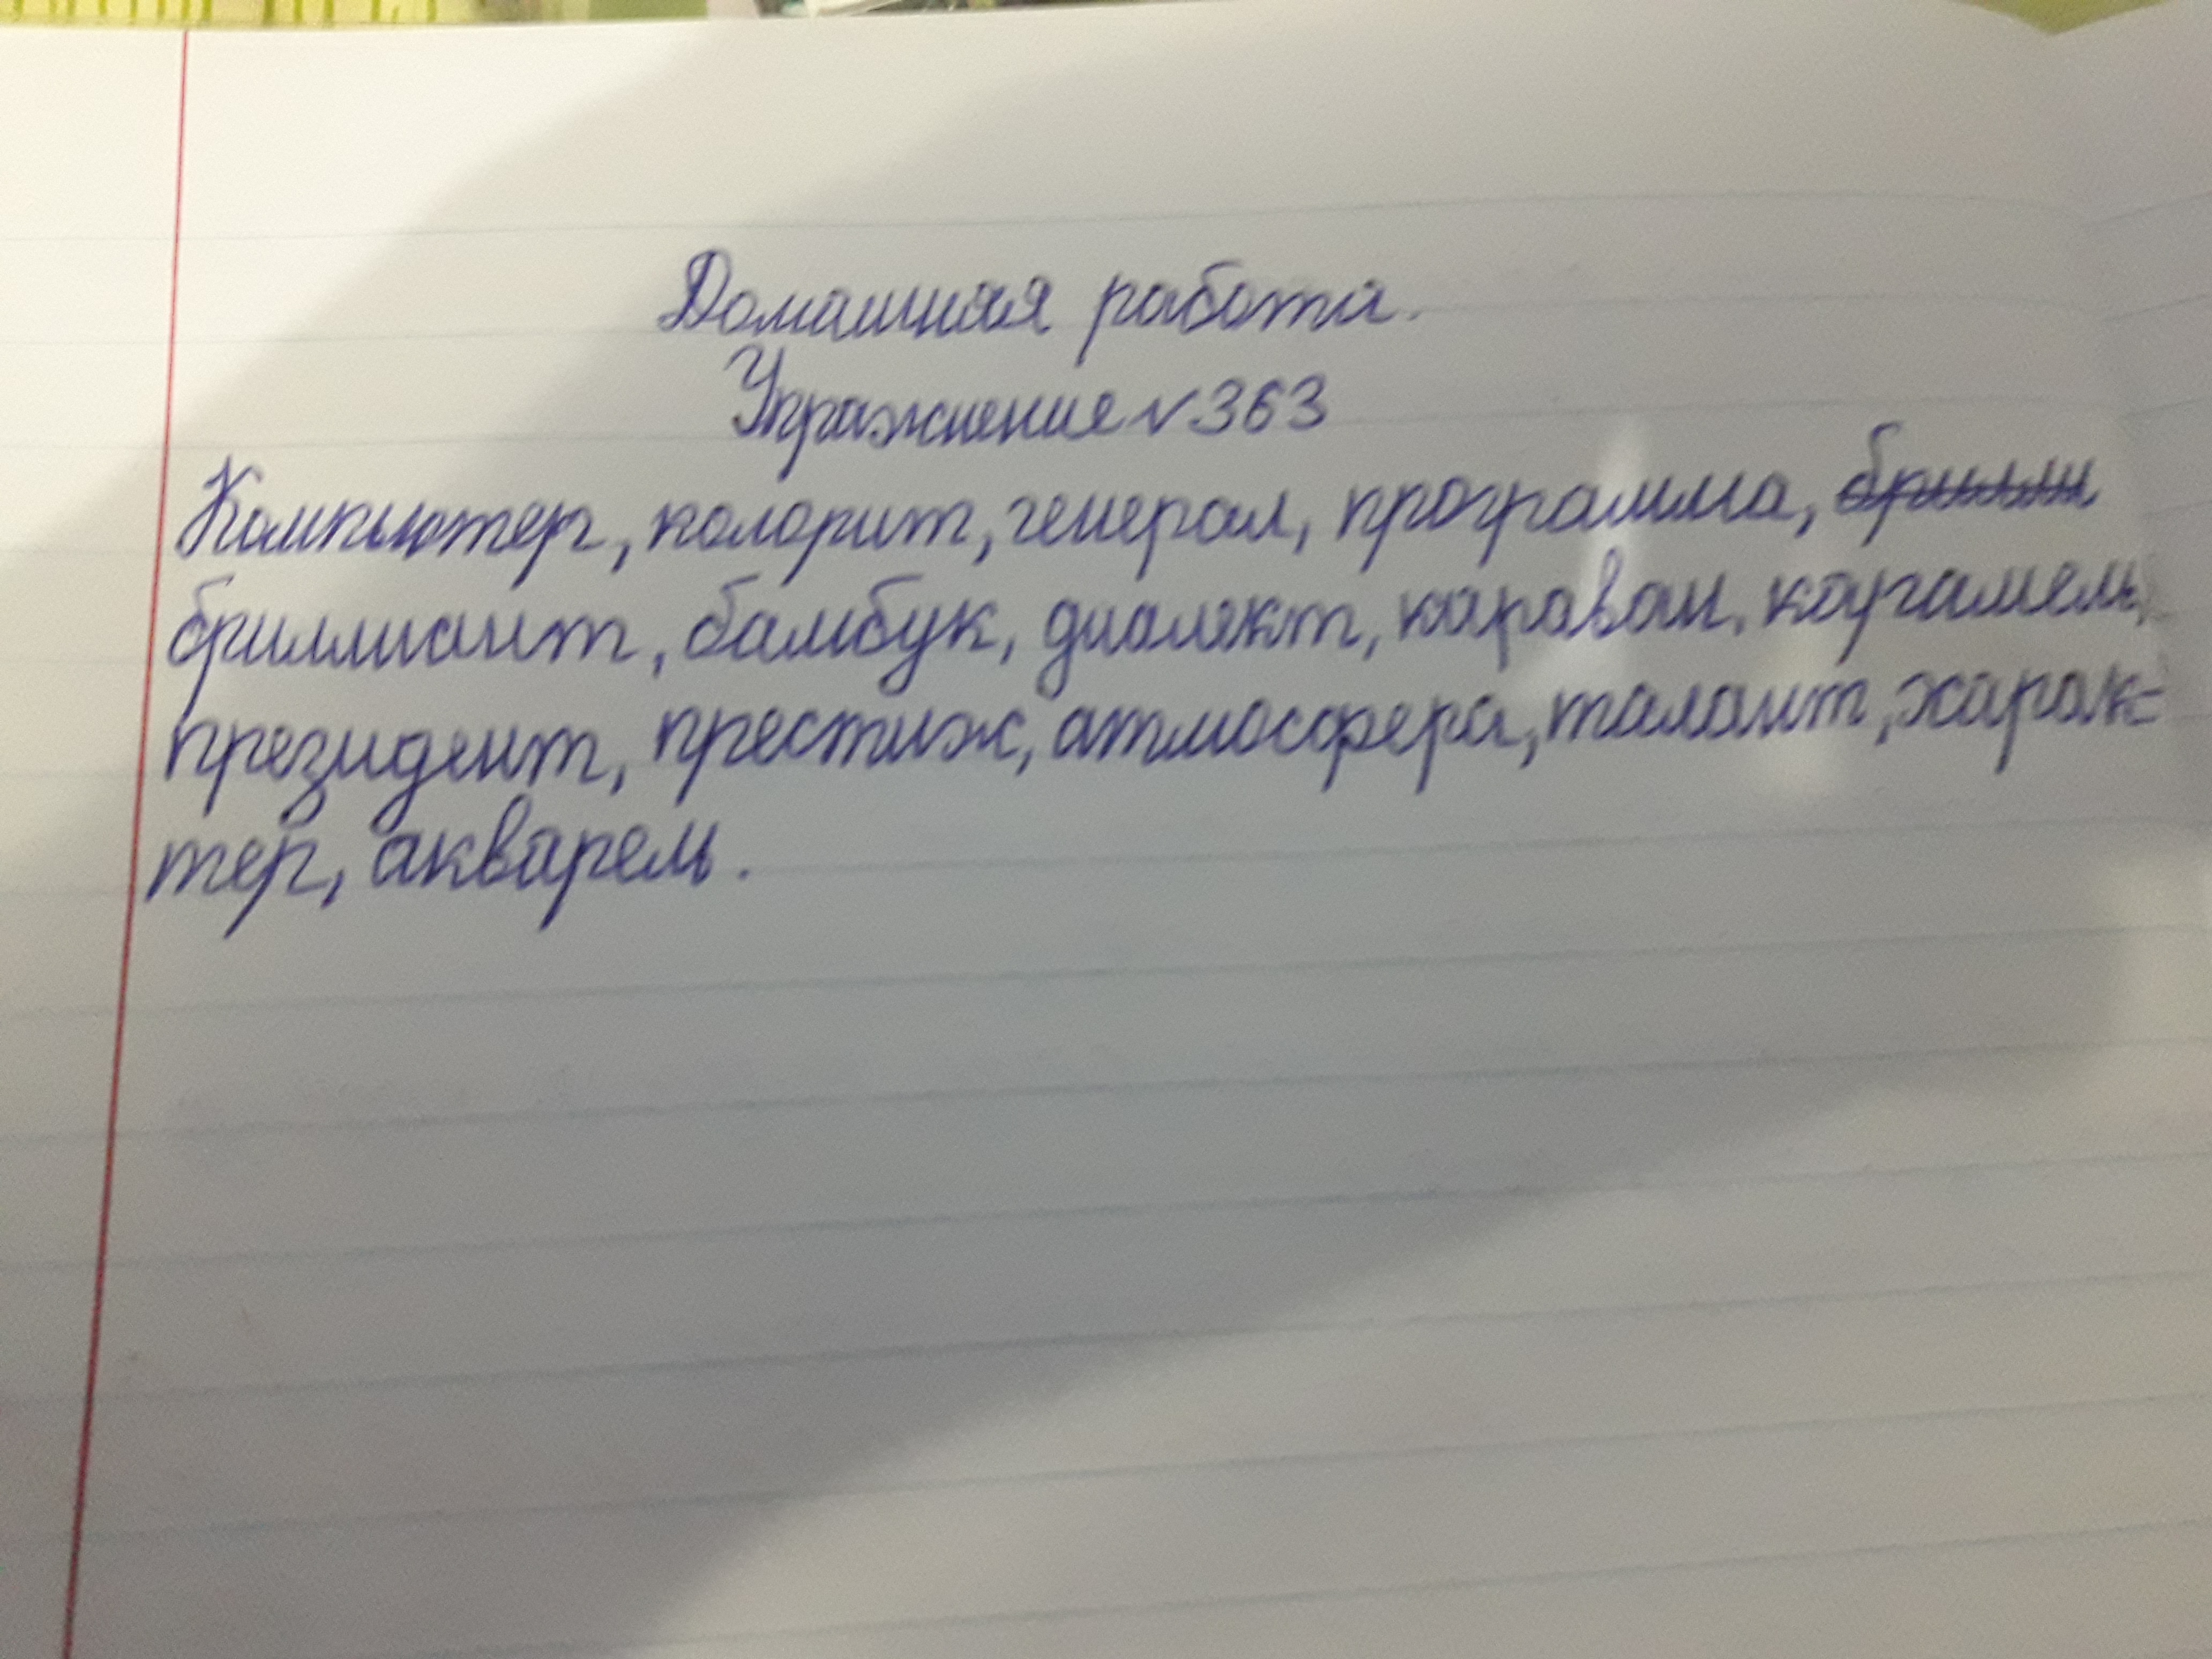 Домашняя работа.
Упражнение №363
Компьютер, колорит, генерал, программа, брилли
бриллиант, бамбук, диалект, караван, карамель,
президент, престиж, атмосфера, талант, харак=
тер, акварель.